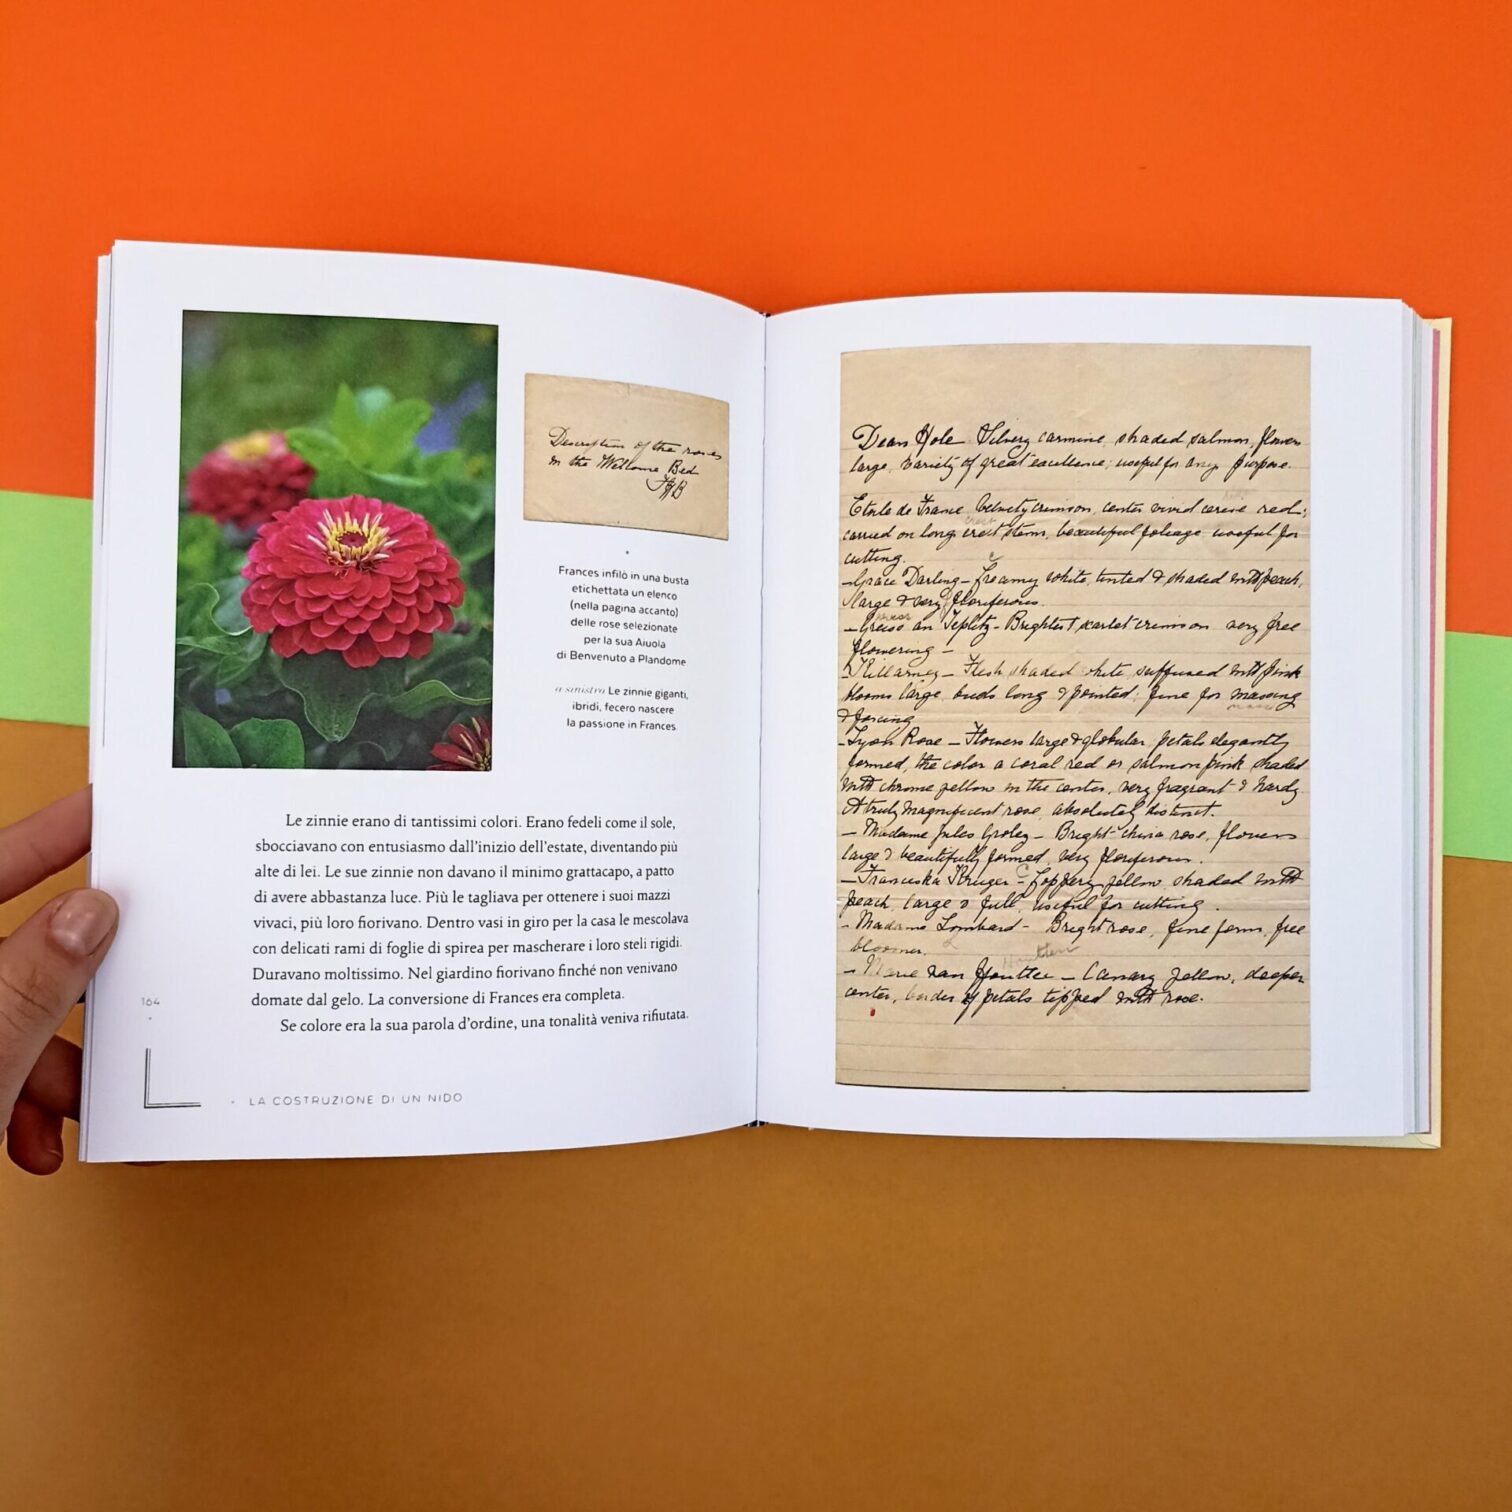 Description of the roses
in the Welcome Bed
FHB
Frances infilò in una busta
etichettata un elenco
(nella pagina accanto)
delle rose selezionate
per la sua Aiuola
di Benvenuto a Plandome
a sinistra Le zinnie giganti,
ibridi, fecero nascere
la passione in Frances.
Le zinnie erano di tantissimi colori. Erano fedeli come il sole,
sbocciavano con entusiasmo dall'inizio dell'estate, diventando più
alte di lei. Le sue zinnie non davano il minimo grattacapo, a patto
di avere abbastanza luce. Più le tagliava per ottenere i suoi mazzi
vivaci, più loro fiorivano. Dentro vasi in giro per la casa le mescolava
con delicati rami di foglie di spirea per mascherare i loro steli rigidi.
Duravano moltissimo. Nel giardino fiorivano finché non venivano
domate dal gelo. La conversione di Frances era completa.
Se colore era la sua parola d'ordine, una tonalità veniva rifiutata.
164
LA COSTRUZIONE DI UN NIDO
Dean Hole Silvery carmine, shaded salmon, flowers
large, variety of great excellence; useful for any purpose.
Etoile de France Velvety crimson, center vivid cerise red;
carried on long erect stems, beautiful foliage useful for
cutting.
- Grace Darling - Creamy white, tinted & shaded with peach,
large & very floriferous.
- an Teplitz - Brightest scarlet crimson very free
flowering -
- Killarney - Flesh, shaded white, suffused with pink
blooms large, buds long & pointed; fine for massing
& forcing
- Lyon Rose - Flowers large & globular, petals elegantly
formed, the color a coral red or salmon pink shaded
with chrome yellow in the center, very fragrant & hardy
A truly magnificent rose, absolutely distinct.
- Madame Jules Groley - Bright china rose, flowers
large & beautifully formed, very floriferous.
- Franciska Kruger - Coppery yellow, shaded with
peach, large & full, useful for cutting.
- Madame Lombard - Bright rose, fine form, free
bloomer.
- Marie van Houttee - Canary yellow, deeper
center, border of petals tipped with rose.